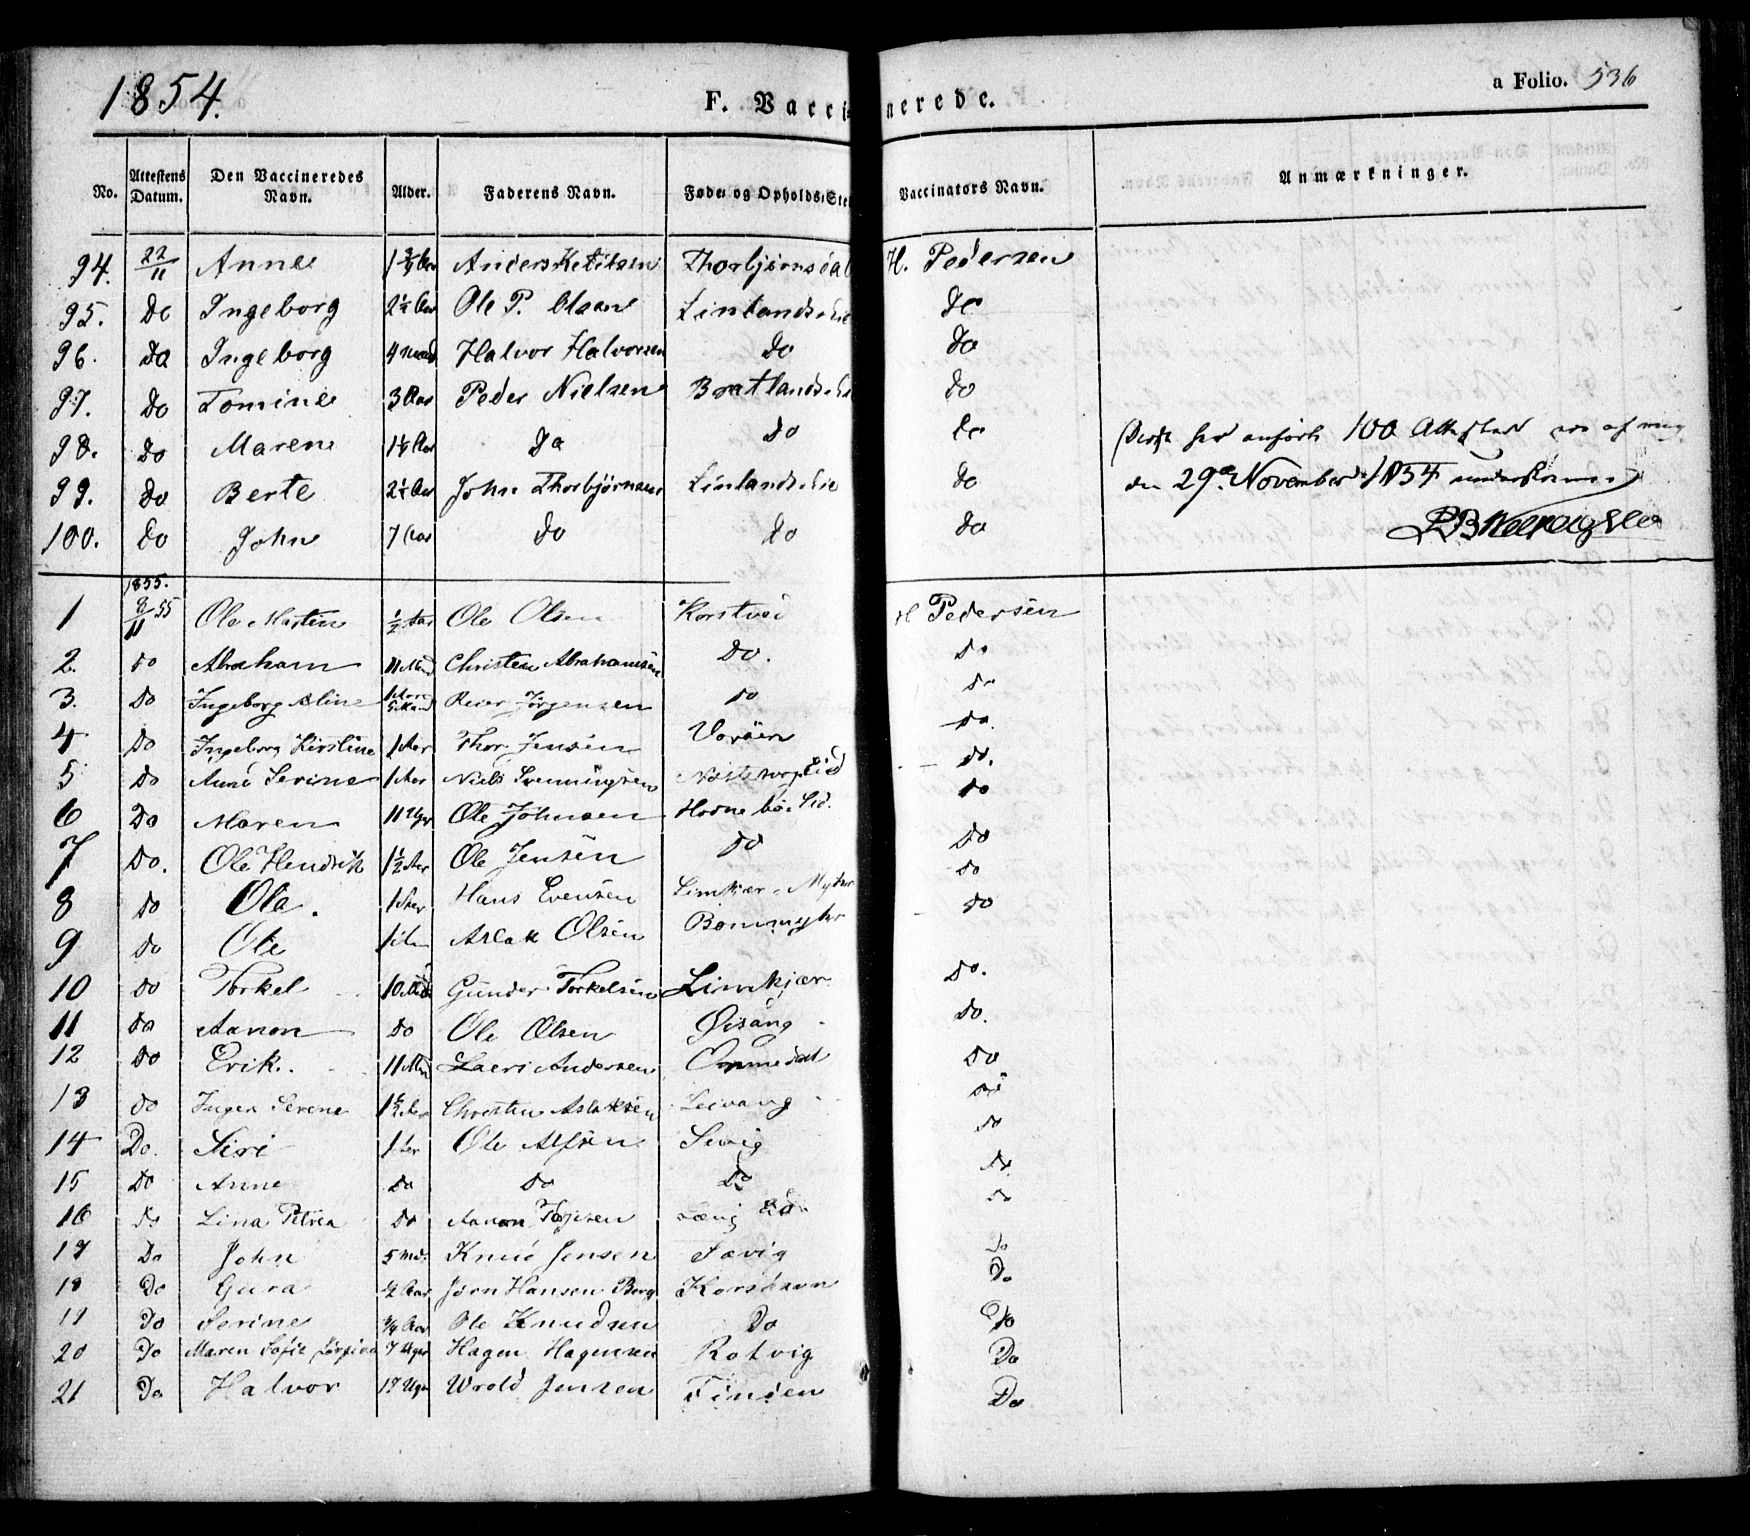 1854. F. Vaccinerede. a Folio. 536
No. Attestens Datum. Den Vaccineredes Navn. Alder. Faderens Navn. Føde- og Opholds-Sted Vaccinators Navn. Anmærkninger.
94. 22/11 Anne 1 3/4 Aar Anders Ketilsen Thorbjørnsdal H. Pedersen
95. Do Ingeborg Aar Ole P. Olsen Linlands Eie Do
96. Do Ingeborg 4 Halvor Halvorsen Do Do
97. Do Tomine 3 Aar Peder Nielsen Bratlands Eie Do
98. Do Marene 1 1/4 Aar Do Do Do
99. Do Berte Aar John Thorbjørnsen Linlands Eie Do
100. Do John 7 Aar Do Do Do
her anførte 100 Attester af mig
den 29de November 1854
1855.
1 9/11 55 Ole Morten 1/2 Aar Ole Olsen Korstvei H Pedersen
2. Do Abraham 11 Mnd Christen Abrahamsen Do. Do
3. Do Ingeborg Aline 1 Aar 5 Maand Reier Jørgensen Do Do
4 Do Ingeborg Kirstine 1 Aar Thor Jensen Vorøen Do.
5 Do Anne Serine 1 Aar Niels Svenningsen Do.
6 Do Maren 11 Uger Ole Johnsen Hodnebø Eid. Do
7 Do. Ole Hendrik 1 1/2 Aar Ole Jensen Do Do
8 Do Ola. 1 Aar Hans Evensen Limkjær Myhr Do
9 Do Ole Aslak Olsen Bommyhr Do
10 Do Torkel 10 Gunder Torkelsen Limkjær Do.
11 Do Aanon Do Ole Olsen Gisang Do.
12 Do Erik. 11 Mnd Laers Andersen Ommedal Do
13 Do Inger Serene Christen Aslaksen Leivang Do
14 Do. Siri 1 Aar Ole Alfsen Sevig Do
15 Do Anne Do Do Do Do
16 Do Lina Petrea Do Aanon Eid Do
17 Do John 5 Md. Knud Jensen Fævig Do
18 Do Gura 1/2 Aar Jørn Hansen Berg Korshavn Do
19 Do Serine 3/4 Aar Ole Knudsen Do Do
20 Do Maren Sofie 7 Uger Hagen Hagensen Rotvig Do
21 Do Halvor 17 Uger Wrold Jensen Do